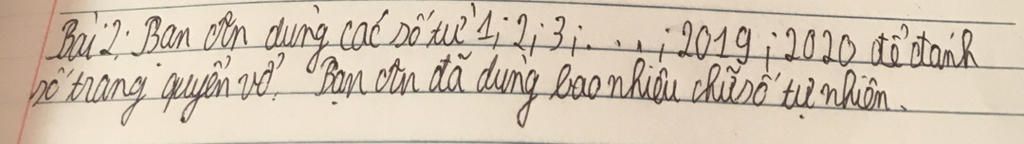 Bài 2: Bạn ơn dùng các số từ 1; 2; 3; . . . ; 2019; 2020 để đánh
số trang quyển vở. Bạn ơn đã dùng bao nhiêu chữ số tự nhiên.